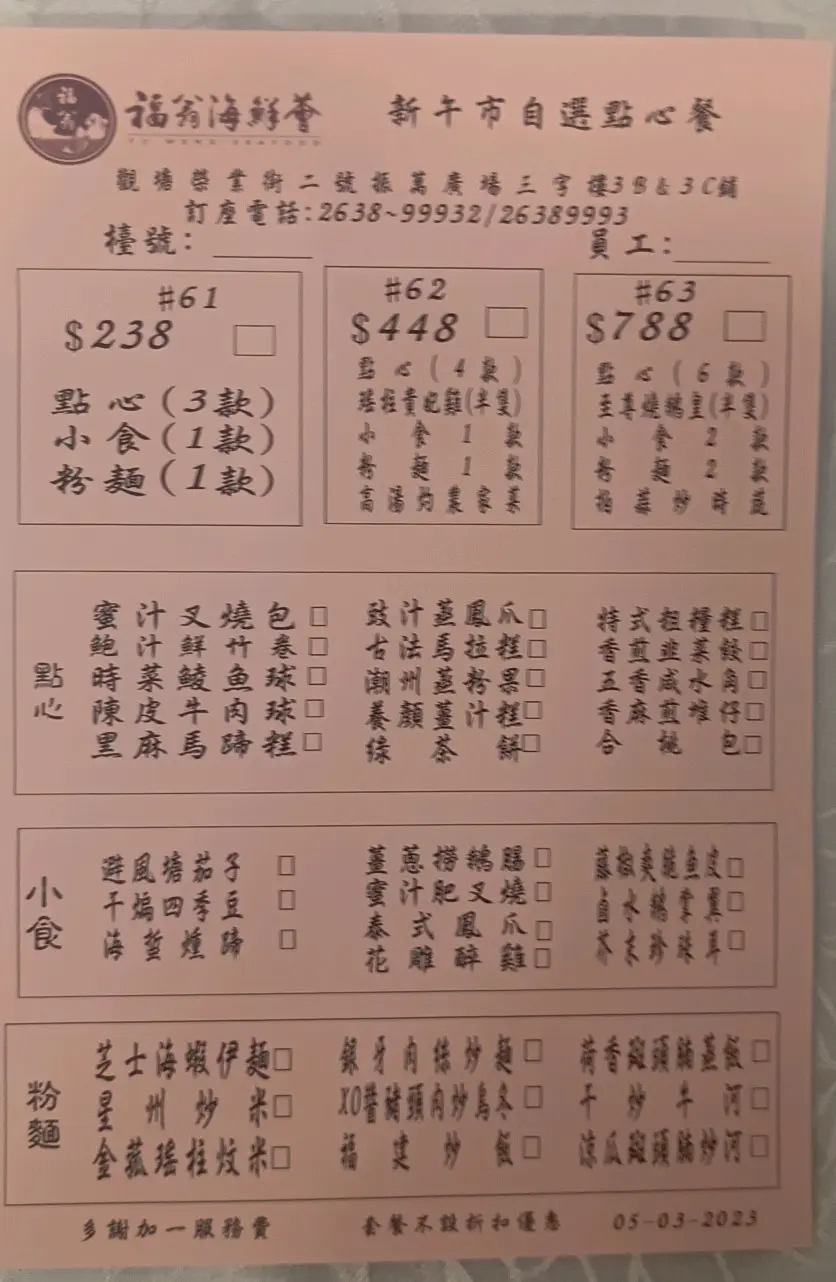 福翁海鮮薈
新午市自選點心餐
觀塘榮業街二號振萬廣場三字樓3B&3C鋪
訂座電話:2638~99932/26389993
檯號:
員工:
#61
$238
點心(3款)
小食(1款)
粉麵(1款)
#62
$448
點心(4款)
瑤柱貴妃雞(半隻)
小食1款
粉麵1款
高湯灼農家菜
#63
$788
點心(6款)
至尊燒鵝皇(半隻)
小食2款
粉麵2款
炒時蔬
點心
蜜汁叉燒包
鮑汁鮮竹卷
時菜鯪魚球
陳皮牛肉球
黑麻馬蹄糕
豉汁蒸鳳爪
古法馬拉糕
潮州蒸粉果
養顏薑汁糕
綠茶餅
特式粗糧糕
香煎韭菜餃
五香咸水角
香麻煎堆仔
合桃包
小食
避風塘茄子
干煸四季豆
海蜇燻蹄
薑蔥撈鵝腸
蜜汁肥叉燒
泰式鳳爪
花雕醉雞
藤椒爽脆魚皮
鹵水鵝掌翼
芥末珍珠耳
粉麵
芝士海蝦伊麵
星州炒米
金菰瑤柱炆米
銀牙肉絲炒麵
XO醬豬頭肉炒烏冬
福建炒飯
荷香斑頭腩蒸飯
干炒牛河
涼瓜斑頭腩炒河
多謝加一服務費
套餐不設折扣優惠
05-03-2023